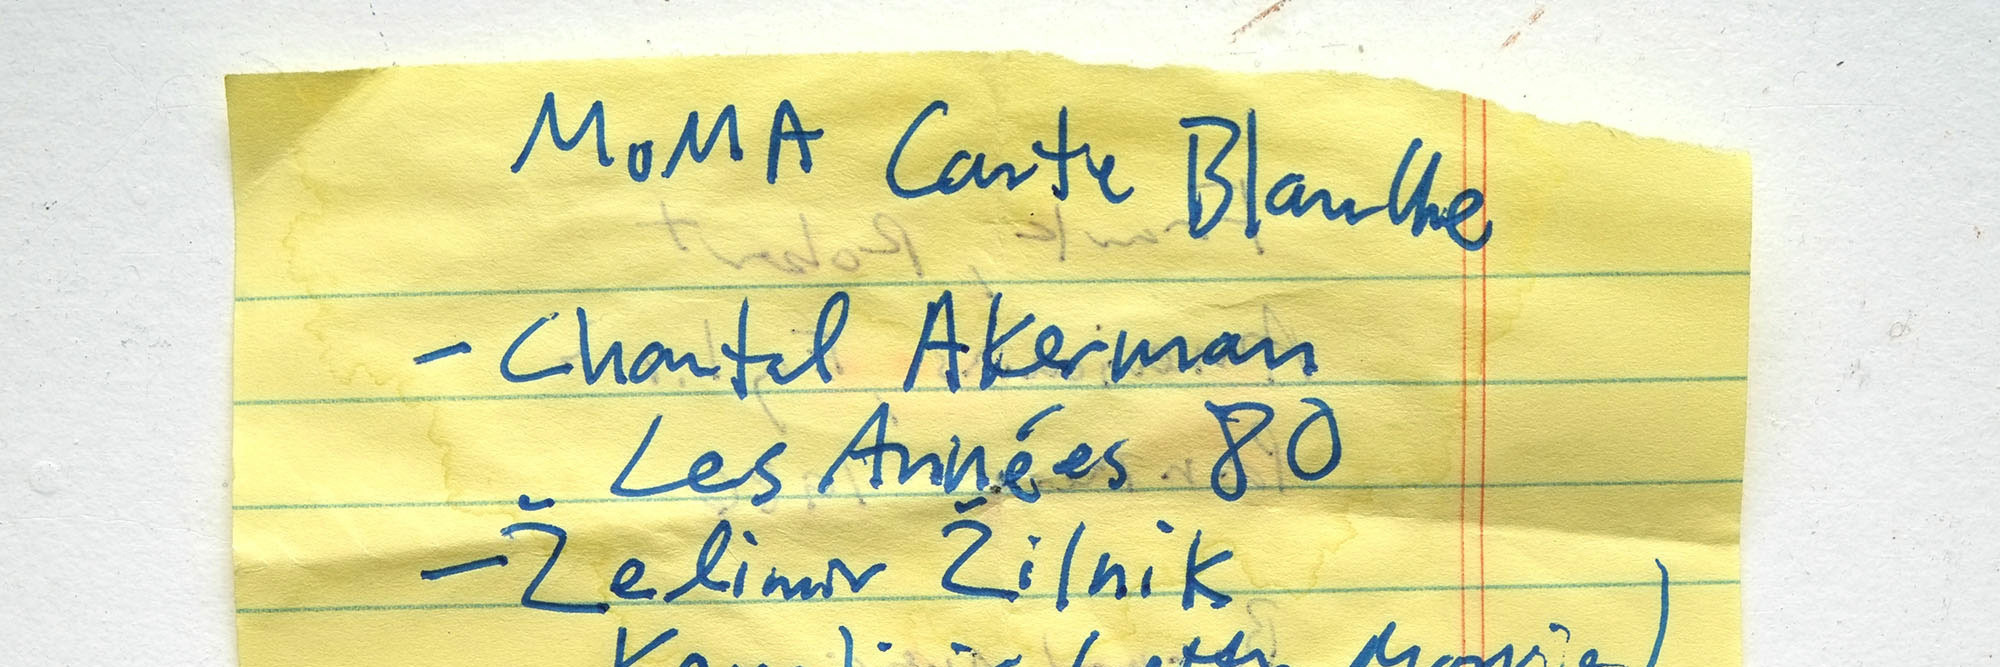 MoMA Carte Blanche
- Chantal Akerman
Les Années 80
- Želimir Žilnik